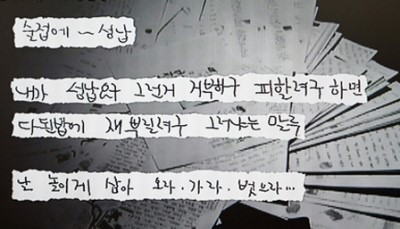 술접에 ~ 성납
내가 성납요구 그런거 거부하구 피할려구 하면
다된밥에 재뿌릴려구 그러냐는 말루
난 놀이게 삼아 오라.가라.벗으라...